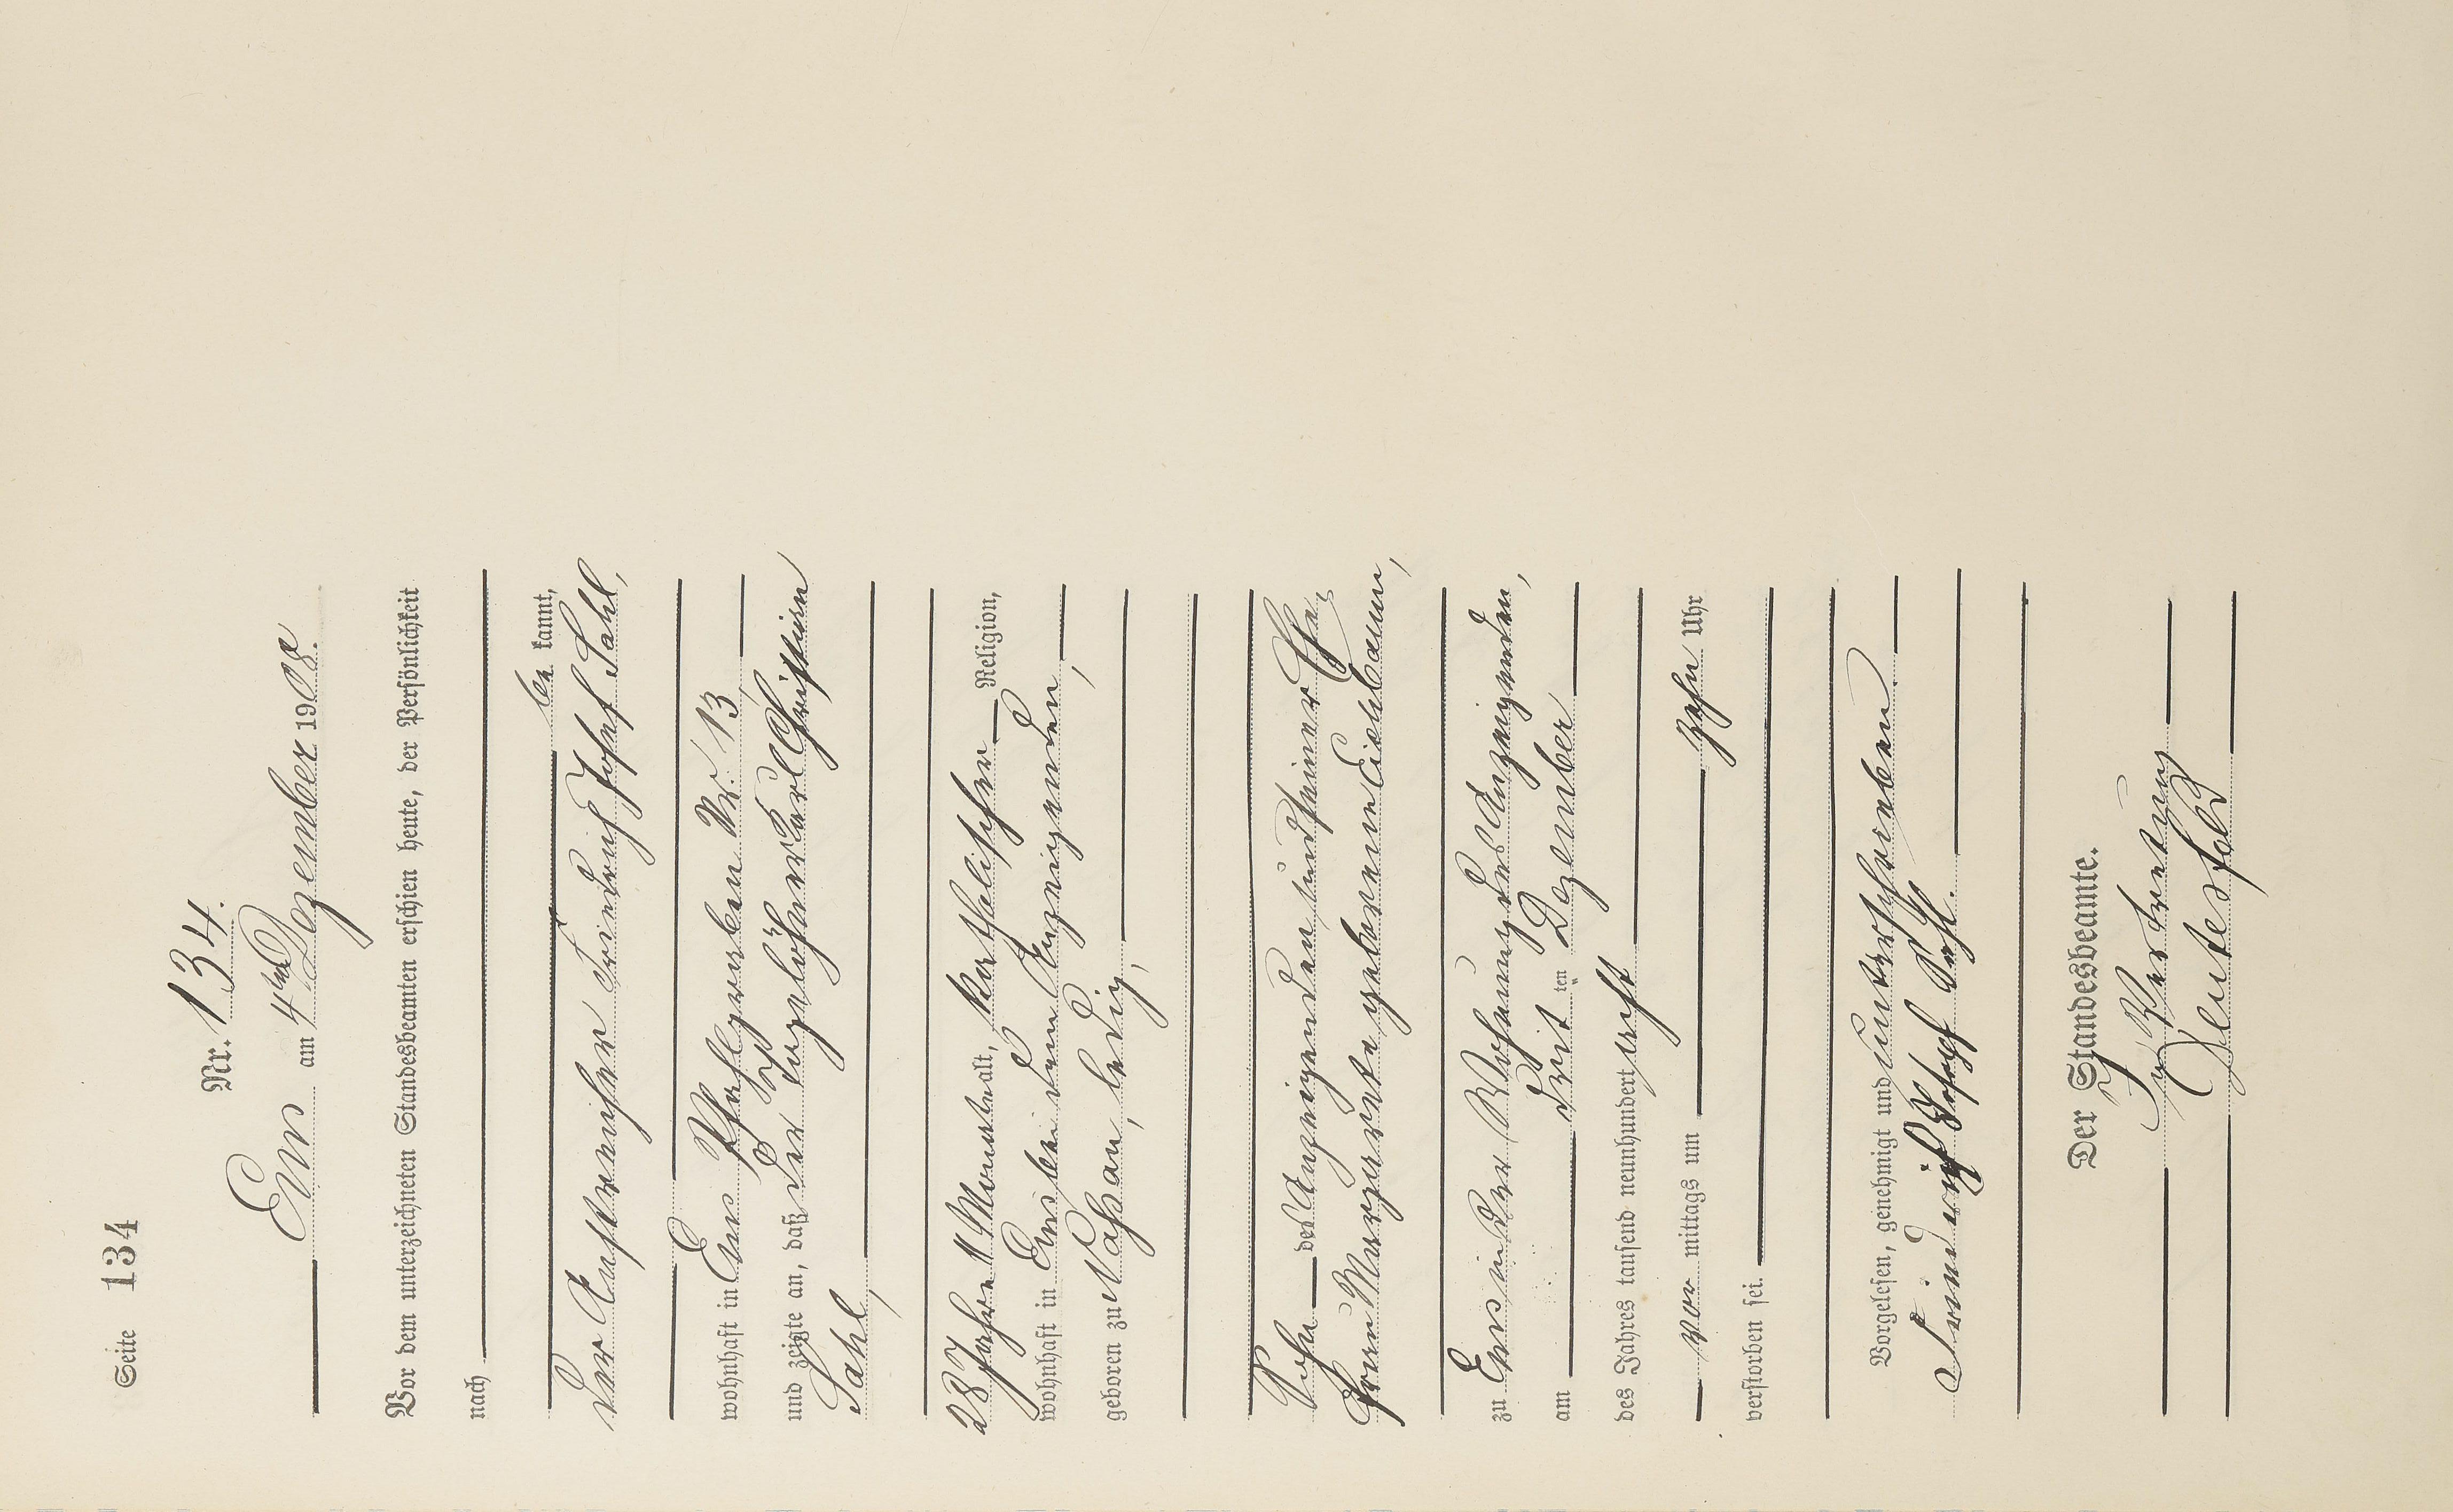 Seite 134
Nr. 134.
Ems am 4ten Dezember 1908.
Vor dem unterzeichneten Standesbeamten erschien heute, der Persönlichkeit
nach
be kannt,
der Anstreicher Friedrich Josef Sahl,
wohnhaft in Ems Pfahlgraben Nr. 13,
und zeigte an, daß der Tagelöhner Karl Christian
Sahl,
28 Jahre 11 Monate alt, katholischer Religion,
wohnhaft in Ems bei dem Anzeigenden,
geboren zu Nassau, ledig,
Sohn des Anzeigenden und seiner Ehe-
frau Margarete geborenen Eichbaum,
zu Ems in der Wohnung des Anzeigenden,
am dritten Dezember
des Jahres tausend neunhundert acht
vor mittags um zehn Uhr
verstorben sei.
Vorgelesen, genehmigt und unterschrieben
Friedrich Josef Sahl.
Der Standesbeamte.
In Vertretung